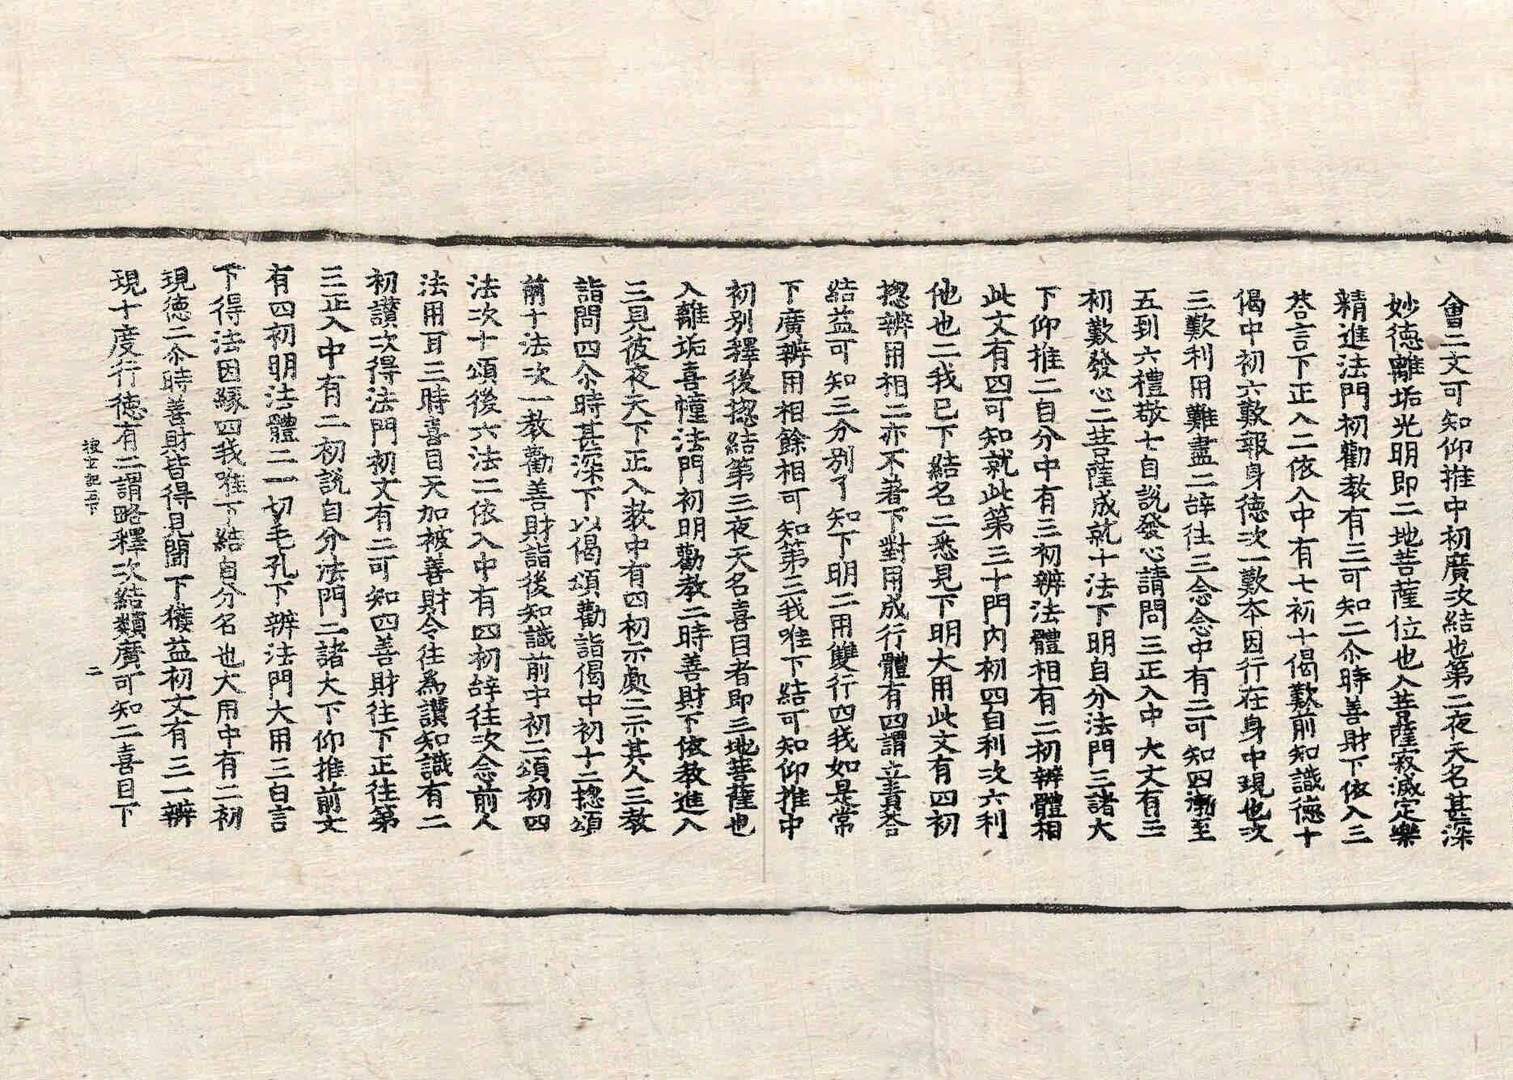 會二文可知仰推中初廣次結也第二夜天名甚深
妙德離垢光明即二地菩薩位也入菩薩寂滅定樂
精進法門初勸教有三可知二尒時善財下依入三
荅言下正入二依入中有七初十偈歎前知識德十
偈中初六歎報身德次一歎本因行在身中現也次
三歎利用難盡二辞往三念念中有二可知四漸至
五到六禮敬七自說發心請問三正入中大文有三
初歎發心二菩薩成就十法下明自分法門三諸大
下仰推二自分中有三初辨法體相有二初辨體相
此文有四可知就此第三十門內初四自利次六利
他也二我已下結名二悉見下明大用此文有四初
揔辨用相二亦不著下對用成行體有四謂立責荅
結益可知三分別了知下明二用雙行四我如是常
下廣辨用相餘相可知第三我唯下結可知仰推中
初別釋後揔結第三夜天名喜目者即三地菩薩也
入離垢喜幢法門初明勸教二時善財下依教進入
三見彼夜天下正入教中有四初示處二示其人三教
詣問四尒時甚深下以偈頌勸詣偈中初十二揔頌
前十法次一教勸善財詣後知識前中初二頌初四
法次十頌後六法二依入中有四初辞往次念前人
法用耳三時喜目天加被善財令往為讚知識有二
初讚次得法門初文有二可知四善財往下正往第
三正入中有二初說自分法門二諸大下仰推前文
有四初明法體二一切毛孔下辨法門大用三白言
下得法因緣四我唯下結自分名也大用中有二初
現德二尒時善財皆得見聞下獲益初文有三一辨
現十度行德有二謂略釋次結類廣可知二喜目下
搜玄記五下 二